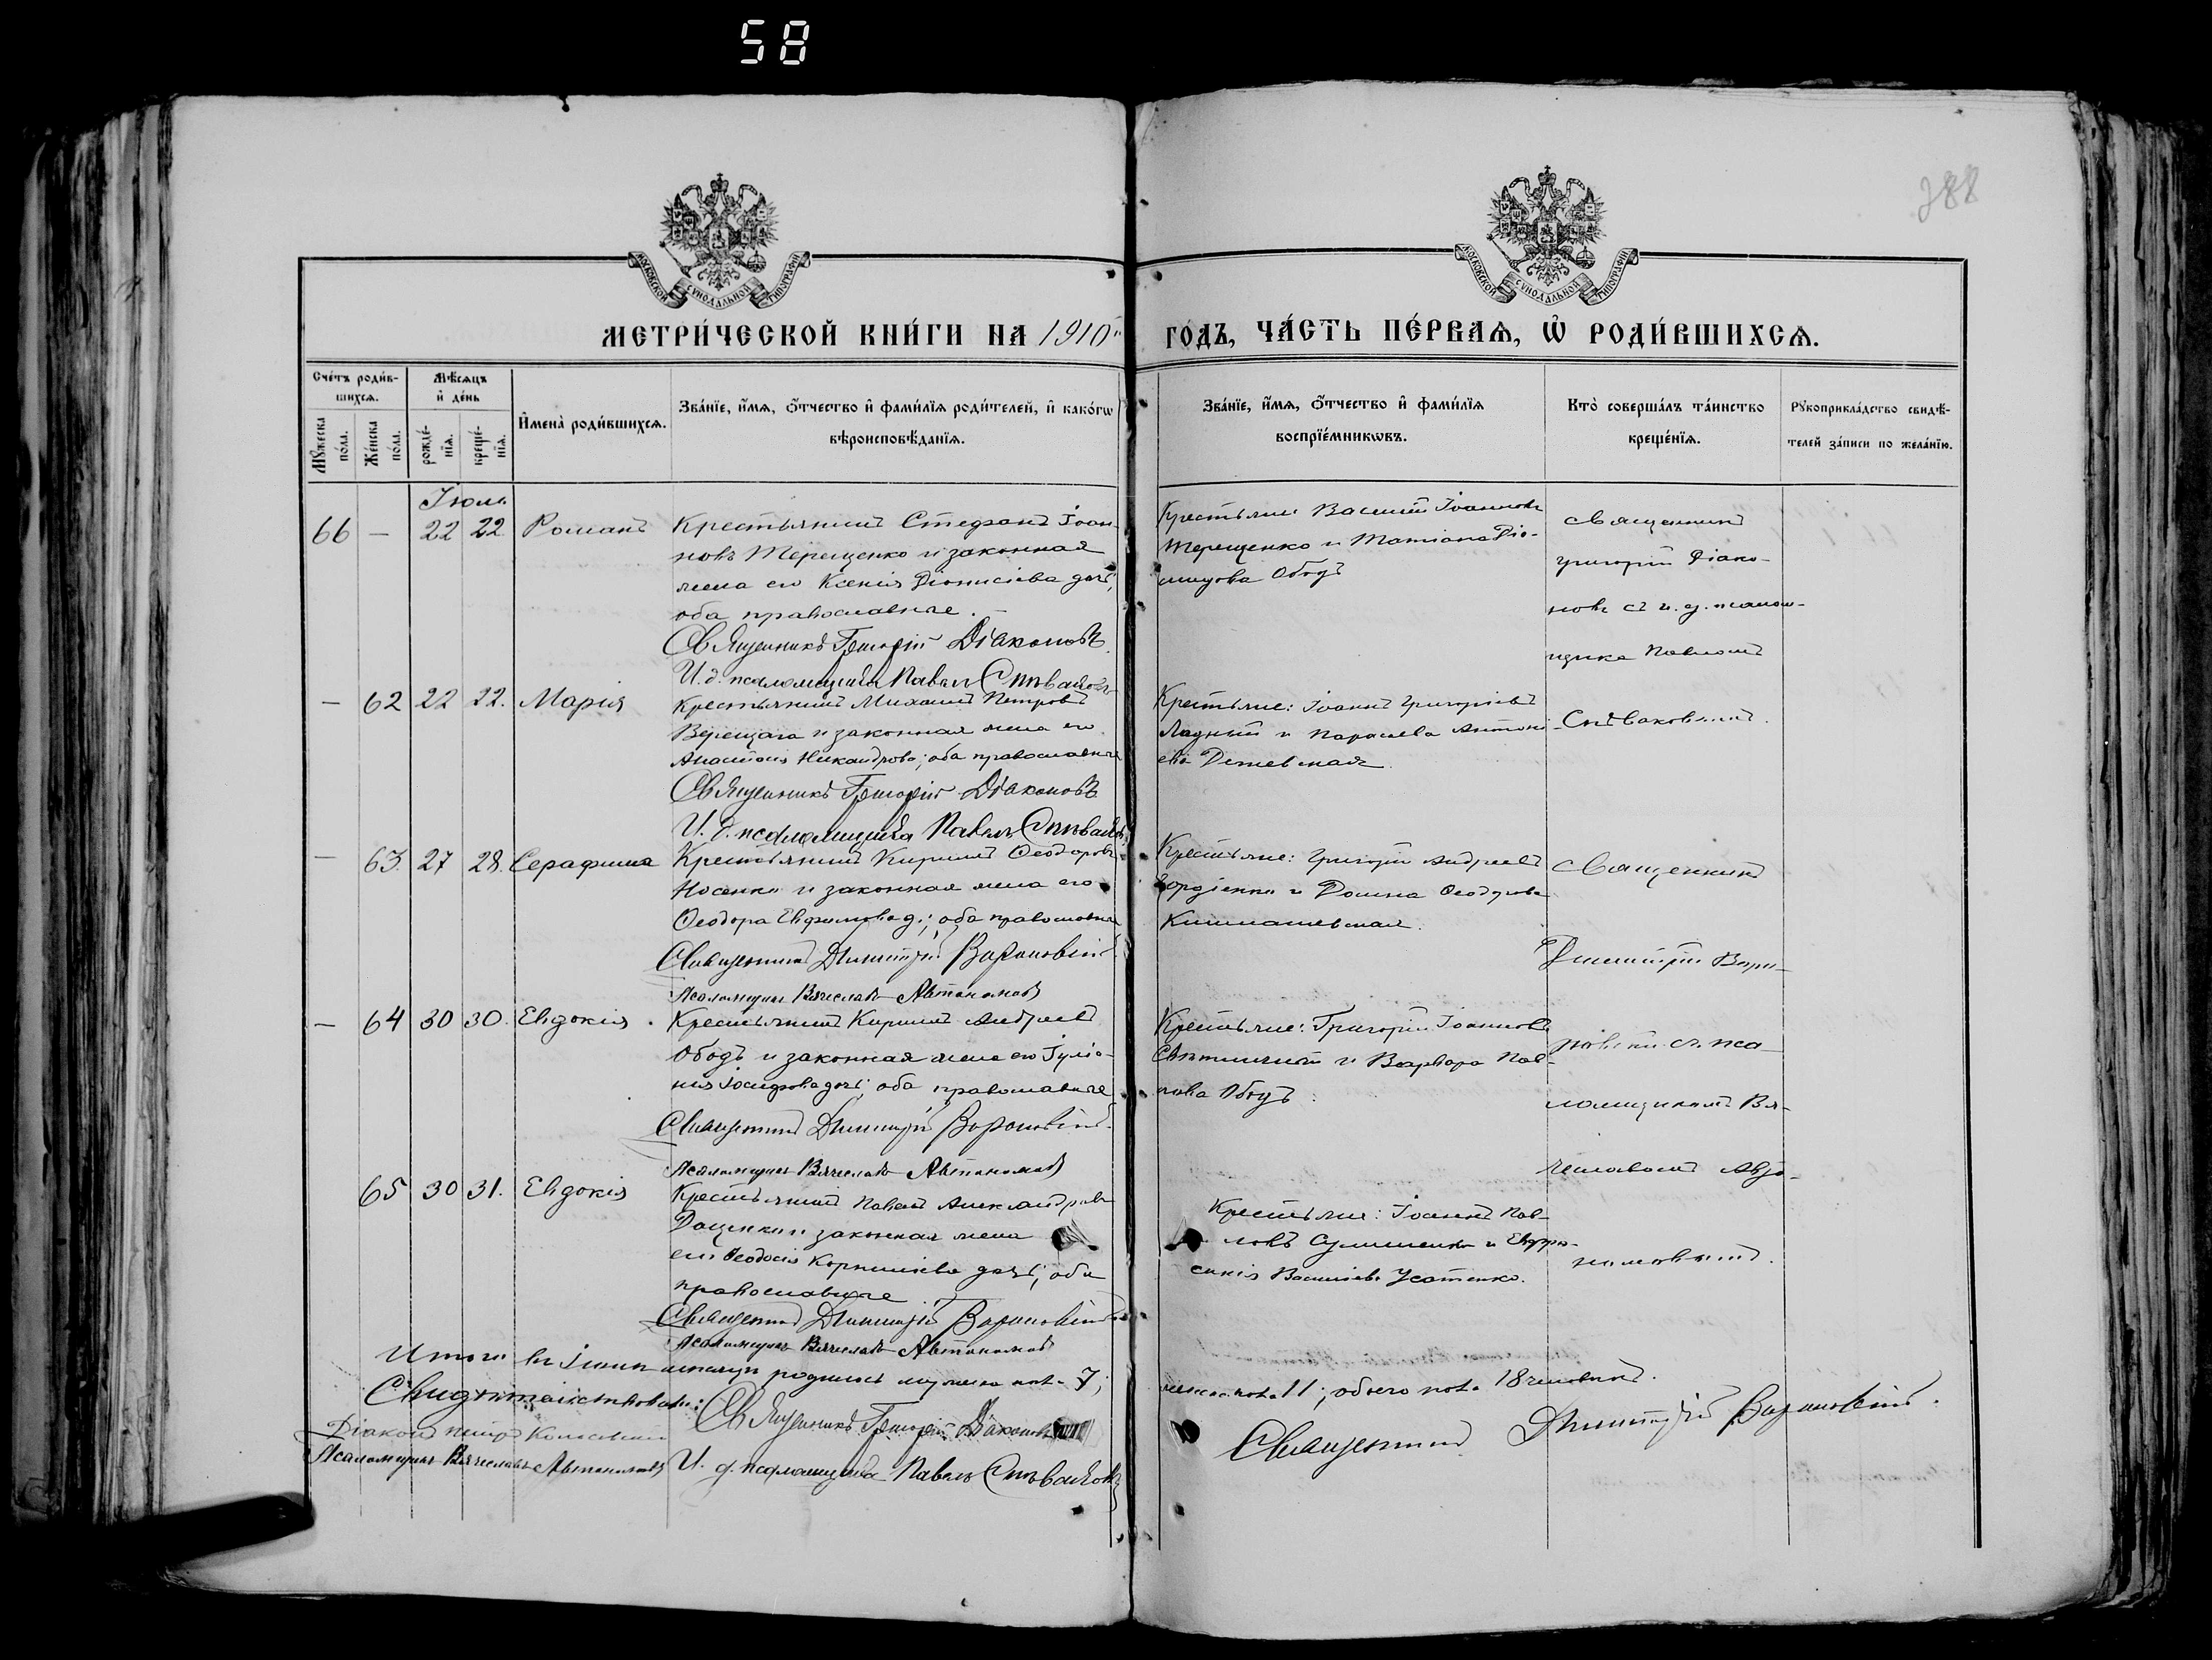 58
388
МОСКОВСКОЙ СУНОДАЛЬНОЙ ТИПОГРАФІИ
МОСКОВСКОЙ СУНОДАЛЬНОЙ ТИПОГРАФІИ
МЕТРИ́ЧЕСКОЙ КНИ́ГИ НА 1910
ГО́ДЪ, ЧА́СТЬ ПЕ́РВАѦ, Ѽ РОДИ́ВШИХСѦ.
Сче́тъ роди́в-
шихсѧ.
Мꙋ́жеска по́ла.
Же́нска по́ла.
Мѣ́сѧцъ
и҆ де́нь
рожде́-
нїѧ.
креще́-
нїѧ.
И҆мена̀ роди́вшихсѧ.
Зва́нїе, и҆́мѧ, ѻ҆́тчество и҆ фами́лїѧ роди́телей, и҆ како́гѡ
вѣроисповѣ́данїѧ.
Зва́нїе, и҆́мѧ, ѻ҆́тчество и҆ фами́лїѧ
воспрїе́мникѡвъ.
Кто̀ соверша́лъ та́инство
креще́нїѧ.
Рꙋкоприкла́дство свидѣ́-
телей за́писи по жела́нїю.
Іюль
66 — 22 22 Романъ
Крестьянинъ Стефанъ Іоан-
новъ Терещенко и законная
жена его Ксенія Діонисіева дочь,
оба православные.
Священникъ Григорій Діаконовъ
И. д. псаломщика Павелъ Спѣваковъ
Крестьяне: Василій Іоанновъ
Терещенко и Татіана Діо-
Ободъ
священникъ
Григорій Діако-
новъ съ и. д. псалом-
щика Павломъ
— 62 22 22. Марія
Крестьянинъ Михаилъ Петровъ
Верещага и законная жена его
Анастасія Никандрова; оба православные
Священникъ Григорій Діаконовъ
И. д. псаломщика Павелъ Спѣваковъ
Крестьяне: Іоаннъ Григоріевъ
Ладный и Параскева Антоні-
ева
Спѣваковымъ.
— 63. 27 28. Серафима
Крестьянинъ Кириллъ Ѳеодоровъ
Носенко и законная жена его
Ѳеодора Евфимова д.; оба православные
Священникъ Димитрій Вороновскій
Псаломщикъ Вячеславъ Автономовъ
Крестьяне: Григорій Андреевъ
Гордіенко и Домна Ѳеодорова
священникъ
Димитрій Воро-
— 64 30 30. Евдокія.
Крестьянинъ Кириллъ Андреевъ
Ободъ и законная жена его Іулiа-
нія Іосифова дочь; оба православные
Священникъ Димитрій Вороновскій
Псаломщикъ Вячеславъ Автономовъ
Крестьяне: Григорій Іоанновъ
и Варвара Пав-
лова Ободъ.
новскій съ пса-
ломщикомъ Вя-
чеславомъ Авто-
65 30 31. Евдокія
Крестьянинъ Павелъ Александровъ
Доценко и законная жена
его Ѳеодосія Корниліева дочь; оба
православные
Священникъ Димитрій Вороновскій
Псаломщикъ Вячеславъ Автономовъ
Крестьяне: Іоаннъ Пав-
ловъ и Евфро-
синія Василіева Усатенко.
номовымъ.
Итого въ мѣсяцѣ родилось мужеска пола 7;
женска пола 11; обоего пола 18 человѣкъ.
Свидѣтельствовали:
Священникъ Григорій Діаконовъ
Священникъ Димитрій Вороновскій.
Діаконъ Петръ
Псаломщикъ Вячеславъ Автономовъ
И. д. псаломщика Павелъ Спѣваковъ